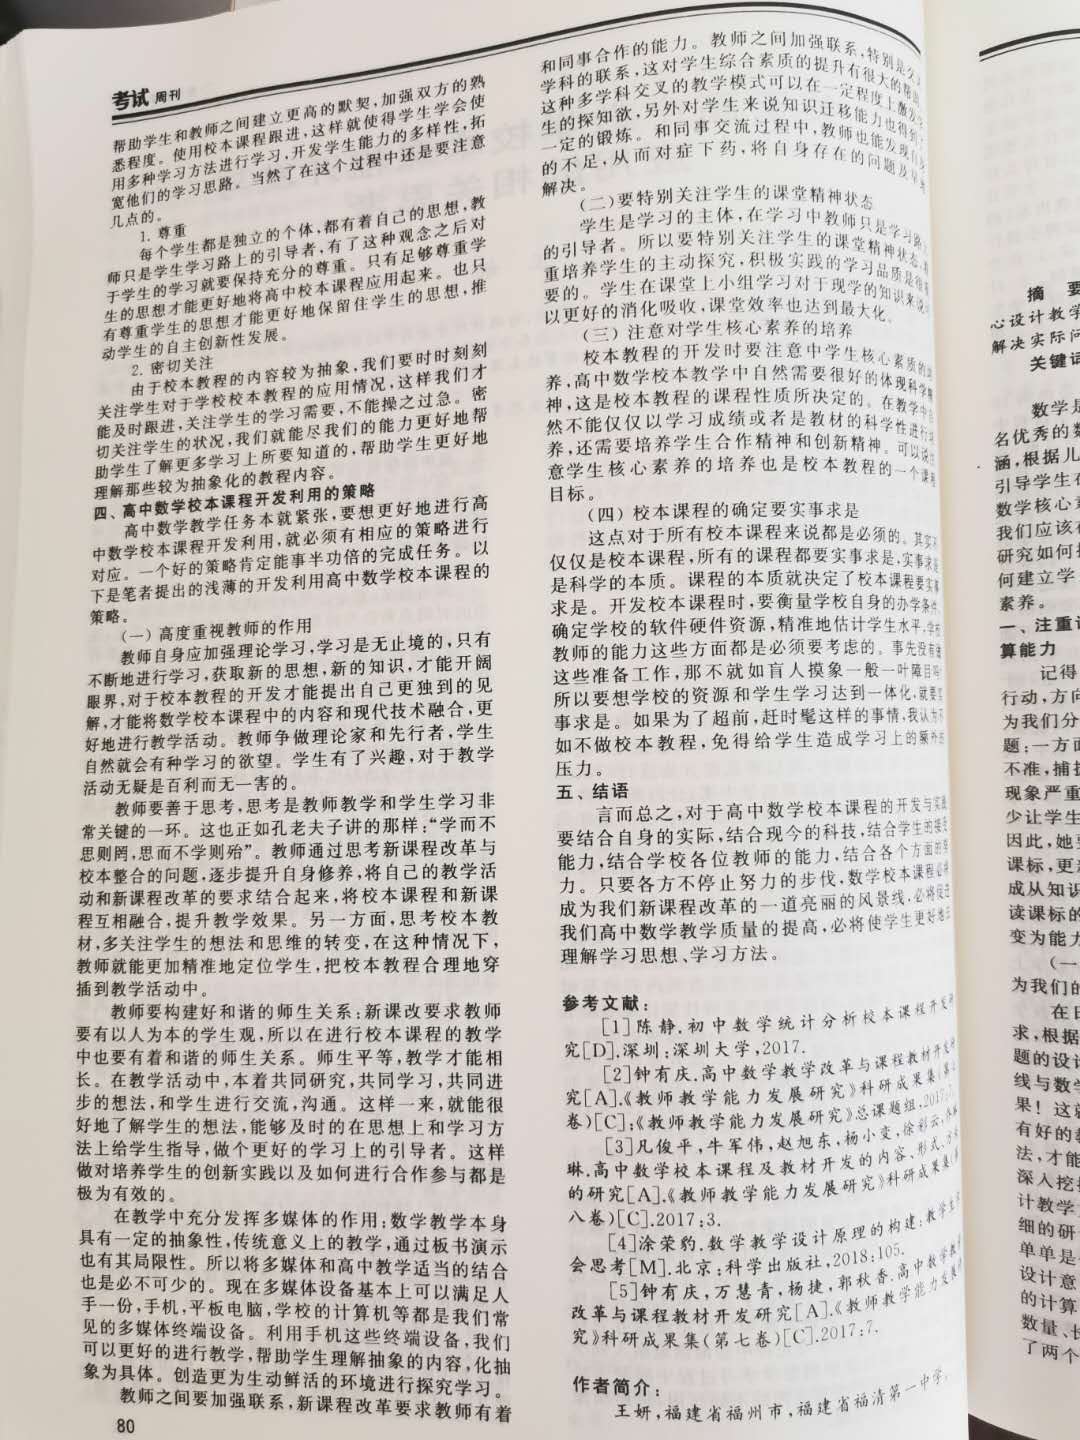 考试 周刊
帮助学生和教师之间建立更高的默契,加强双方的熟
悉程度。使用校本课程跟进,这样就使得学生学会使
用多种学习方法进行学习,开发学生能力的多样性,拓
宽他们的学习思路。当然了在这个过程中还是要注意
几点的。
1. 尊重
每个学生都是独立的个体,都有着自己的思想,教
师只是学生学习路上的引导者,有了这种观念之后对
于学生的学习就要保持充分的尊重。只有足够尊重学
生的思想才能更好地将高中校本课程应用起来。也只
有尊重学生的思想才能更好地保留住学生的思想,推
动学生的自主创新性发展。
2. 密切关注
由于校本教程的内容较为抽象,我们要时时刻刻
关注学生对于学校校本教程的应用情况,这样我们才
能及时跟进,关注学生的学习需要,不能操之过急。密
切关注学生的状况,我们就能尽我们的能力更好地帮
助学生了解更多学习上所要知道的,帮助学生更好地
理解那些较为抽象化的教程内容。
四、高中数学校本课程开发利用的策略
高中数学教学任务本就紧张,要想更好地进行高
中数学校本课程开发利用,就必须有相应的策略进行
对应。一个好的策略肯定能事半功倍的完成任务。以
下是笔者提出的浅薄的开发利用高中数学校本课程的
策略。
(一) 高度重视教师的作用
教师自身应加强理论学习,学习是无止境的,只有
不断地进行学习,获取新的思想,新的知识,才能开阔
眼界,对于校本教程的开发才能提出自己更独到的见
解,才能将数学校本课程中的内容和现代技术融合,更
好地进行教学活动。教师争做理论家和先行者,学生
自然就会有种学习的欲望。学生有了兴趣,对于教学
活动无疑是百利而无一害的。
教师要善于思考,思考是教师教学和学生学习非
常关键的一环。这也正如孔老夫子讲的那样:“学而不
思则罔,思而不学则殆”。教师通过思考新课程改革与
校本整合的问题,逐步提升自身修养,将自己的教学活
动和新课程改革的要求结合起来,将校本课程和新课
程互相融合,提升教学效果。另一方面,思考校本教
材,多关注学生的想法和思维的转变,在这种情况下,
教师就能更加精准地定位学生,把校本教程合理地穿
插到教学活动中。
教师要构建好和谐的师生关系;新课改要求教师
要有以人为本的学生观,所以在进行校本课程的教学
中也要有着和谐的师生关系。师生平等,教学才能相
长。在教学活动中,本着共同研究,共同学习,共同进
步的想法,和学生进行交流,沟通。这样一来,就能很
好地了解学生的想法,能够及时的在思想上和学习方
法上给学生指导,做个更好的学习上的引导者。这样
做对培养学生的创新实践以及如何进行合作参与都是
极为有效的。
在教学中充分发挥多媒体的作用;数学教学本身
具有一定的抽象性,传统意义上的教学,通过板书演示
也有其局限性。所以将多媒体和高中教学适当的结合
也是必不可少的。现在多媒体设备基本上可以满足人
手一份,手机,平板电脑,学校的计算机等都是我们常
见的多媒体终端设备。利用手机这些终端设备,我们
可以更好的进行教学,帮助学生理解抽象的内容,化抽
象为具体。创造更为生动鲜活的环境进行探究学习。
教师之间要加强联系,新课程改革要求教师有着
80
和同事合作的能力。教师之间加强联系,特别是
学科的联系,这对学生综合素质的提升有很大的帮助
这种多学科交叉的教学模式可以在一定程度上激发
生的探知欲,另外对学生来说知识迁移能力也得到
一定的锻炼。和同事交流过程中,教师也能发现
的不足,从而对症下药,将自身存在的问题及早
解决。
(二)要特别关注学生的课堂精神状态
学生是学习的主体,在学习中教师只是学习路
的引导者。所以要特别关注学生的课堂精神状态,
重培养学生的主动探究,积极实践的学习品质是很
要的。学生在课堂上小组学习对于现学的知识来说
以更好的消化吸收,课堂效率也达到最大化。
(三) 注意对学生核心素养的培养
校本教程的开发时要注意中学生核心素质的
养,高中数学校本教学中自然需要很好的体现科学精
神,这是校本教程的课程性质所决定的。在教学中
然不能仅仅以学习成绩或者是教材的科学性进行
养,还需要培养学生合作精神和创新精神。可以说
意学生核心素养的培养也是校本教程的一个课程
目标。
(四) 校本课程的确定要实事求是
这点对于所有校本课程来说都是必须的。其实不
仅仅是校本课程,所有的课程都要实事求是,实事求是
是科学的本质。课程的本质就决定了校本课程要实事
求是。开发校本课程时,要衡量学校自身的办学条件,
确定学校的软件硬件资源,精准地估计学生水平,学校
教师的能力这些方面都是必须要考虑的。事先没有
这些准备工作,那不就如盲人摸象一般一叶障目
所以要想学校的资源和学生学习达到一体化,就要实
事求是。如果为了超前,赶时髦这样的事情,我认为不
如不做校本教程,免得给学生造成学习上的额外的
压力。
五、结语
言而总之,对于高中数学校本课程的开发与实践
要结合自身的实际,结合现今的科技,结合学生的接受
能力,结合学校各位教师的能力,结合各个方面的努
力。只要各方不停止努力的步伐,数学校本课程必将
成为我们新课程改革的一道亮丽的风景线,必将促进
我们高中数学教学质量的提高,必将使学生更好地
理解学习思想、学习方法。
参考文献:
[1]陈静.初中数学统计分析校本课程开发研
究[D].深圳:深圳大学,2017.
[2]钟有庆.高中数学教学改革与课程教材开发研
究[A].《教师教学能力发展研究》科研成果集(第
卷)[C]:《教师教学能力发展研究》总课题组,2017:7.
[3]凡俊平,牛军伟,赵旭东,杨小变,徐彩云,
琳.高中数学校本课程及教材开发的内容、形式、方
的研究[A].《教师教学能力发展研究》科研成果集(第
八卷)[C].2017:3.
[4]涂荣豹.数学教学设计原理的构建:教学生
会思考[M].北京:科学出版社,2018:105.
[5]钟有庆,万慧青,杨捷,郭秋香.高中数学教学
改革与课程教材开发研究[A].《教师教学能力发展研
究》科研成果集(第七卷)[C].2017:7.
作者简介:
王妍,福建省福州市,福建省福清第一中学。
摘 要
心设计教学
解决实际问
关键词
数学是
名优秀的数
涵,根据儿
引导学生在
数学核心素
我们应该
研究如何
何建立学
素养。
一、注重
算能力
记得
行动,方向
为我们分
题:一方面
不准,捕捉
现象严重
少让学生
因此,她
课标,更
成从知识
读课标的
变为能力
(一
为我们的
在
求,根据
题的设计
线与数学
果!这
有好的教
法,才能
深入挖
计教学
细的研
单单是
设计意
的计算
数量、长
了两个